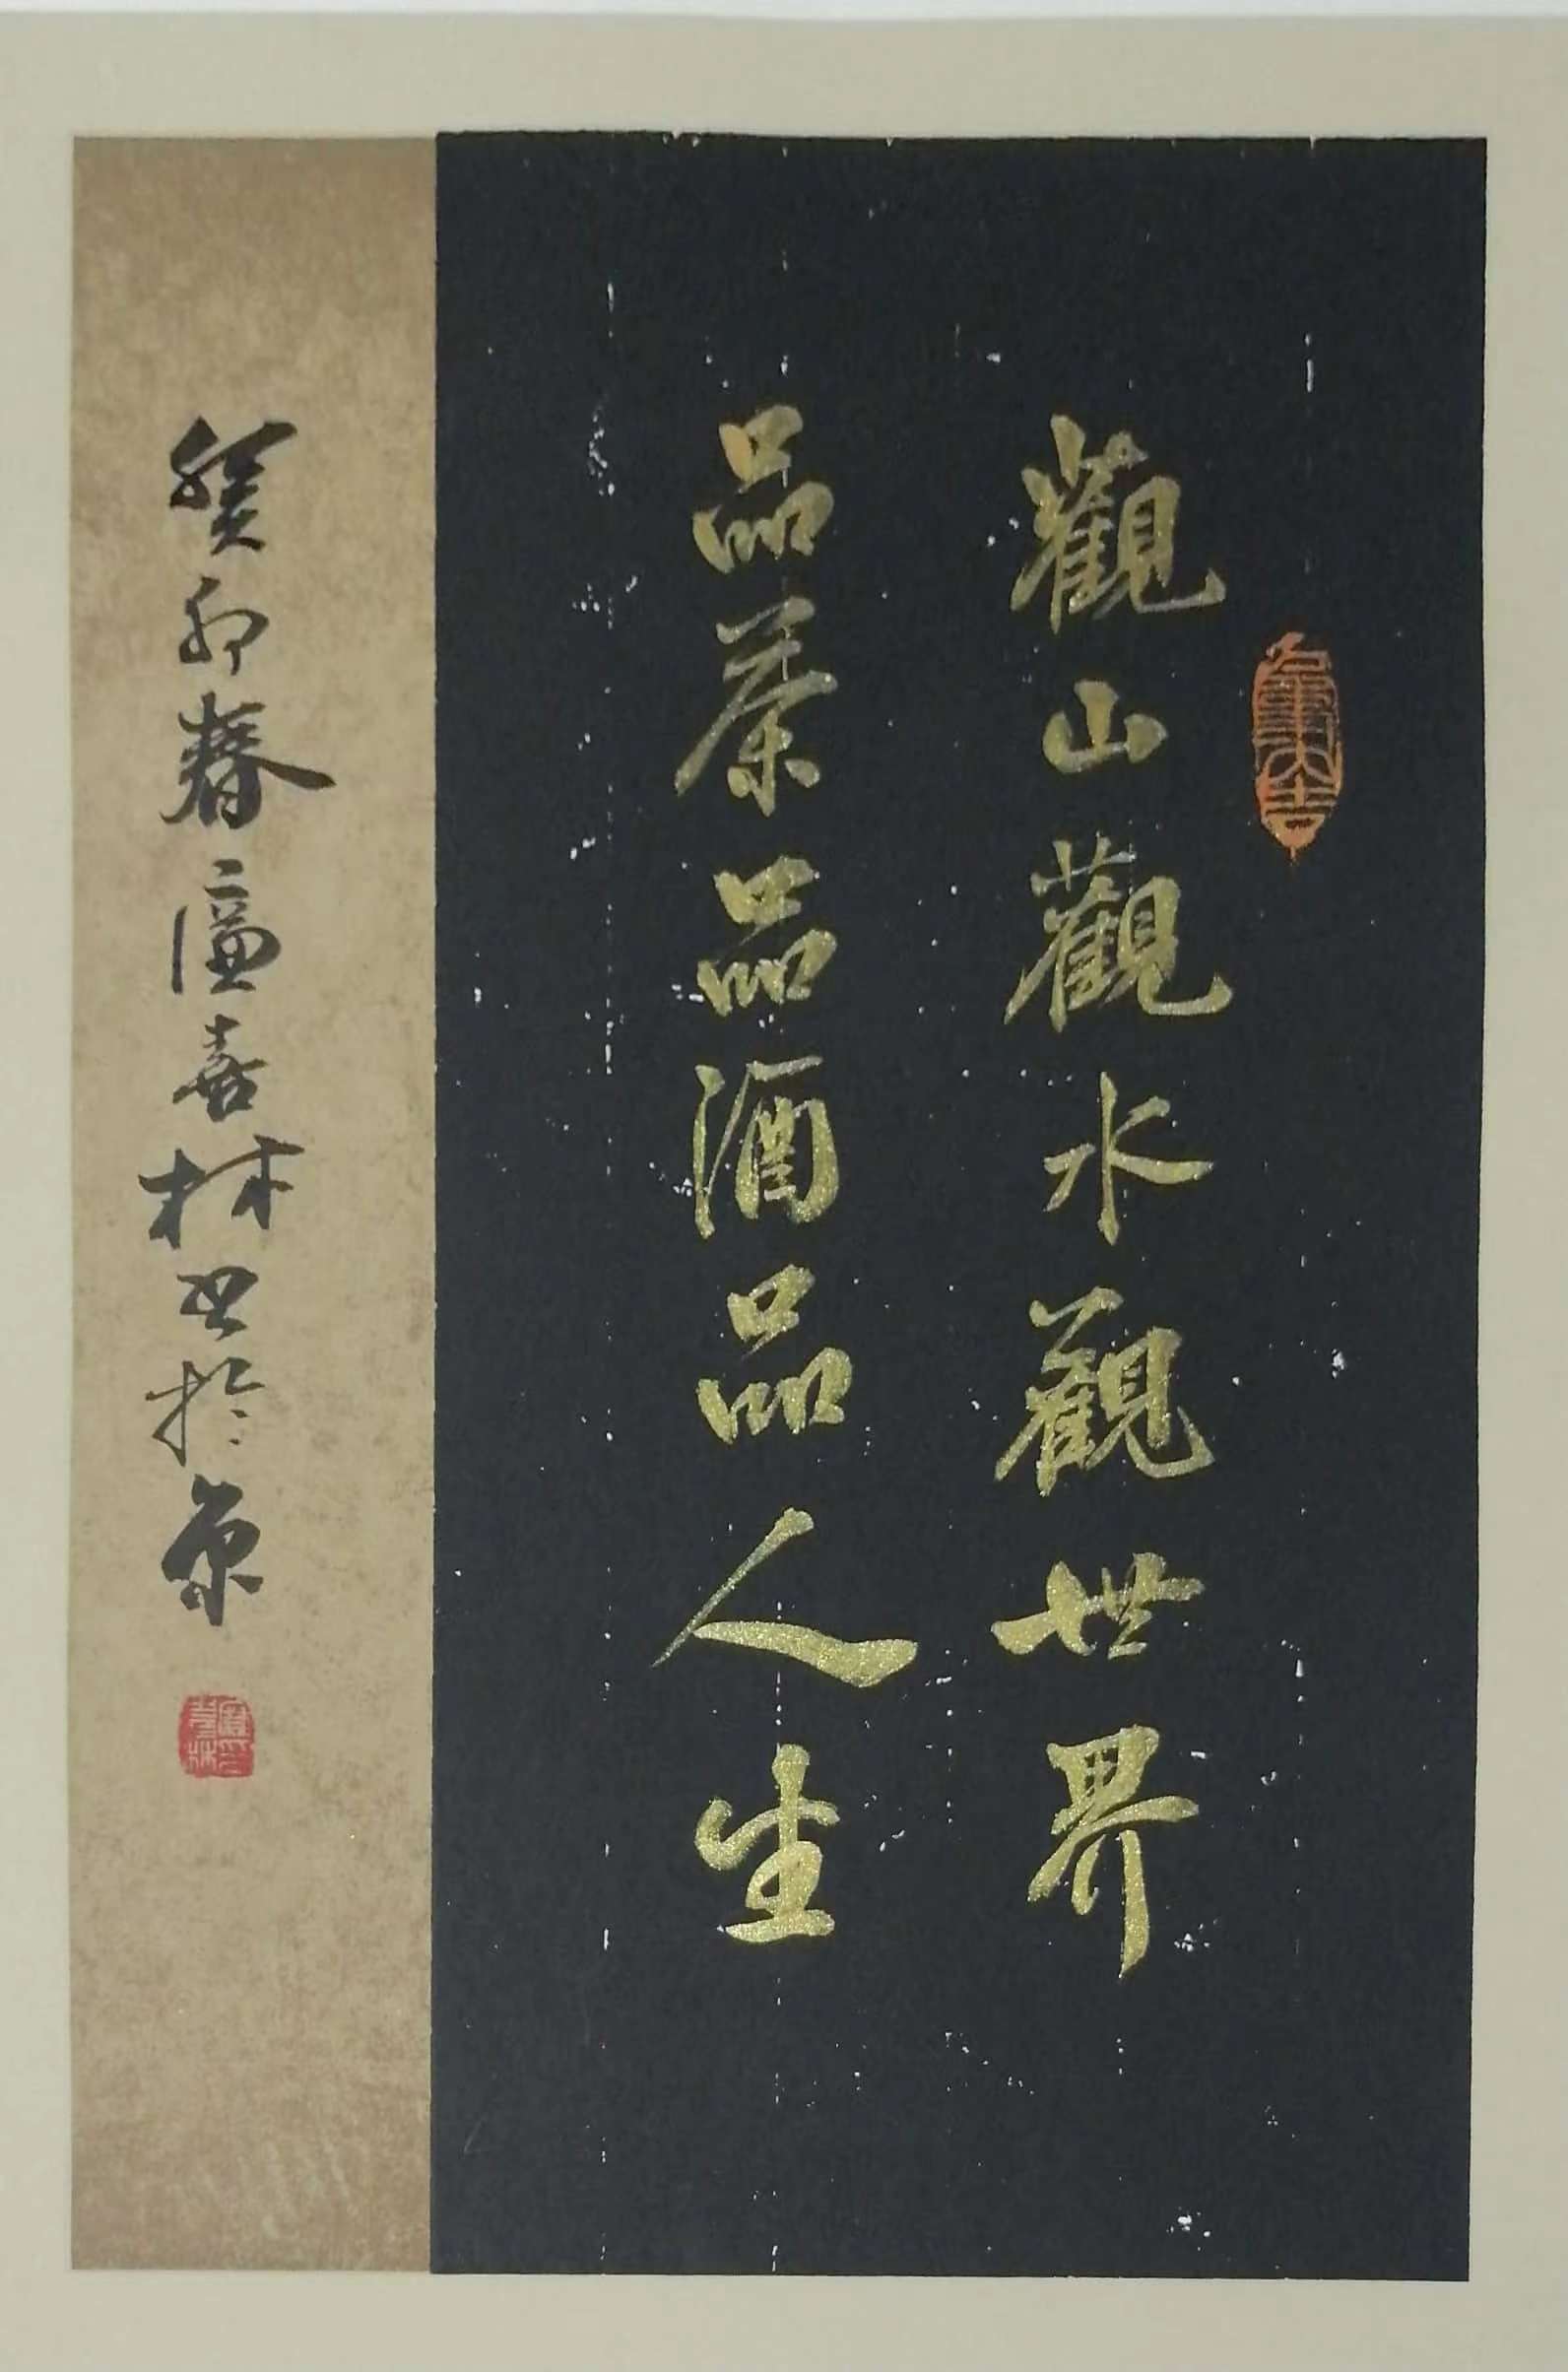 觀山觀水觀世界
品茶品酒品人生
癸卯春廬喜林書於京